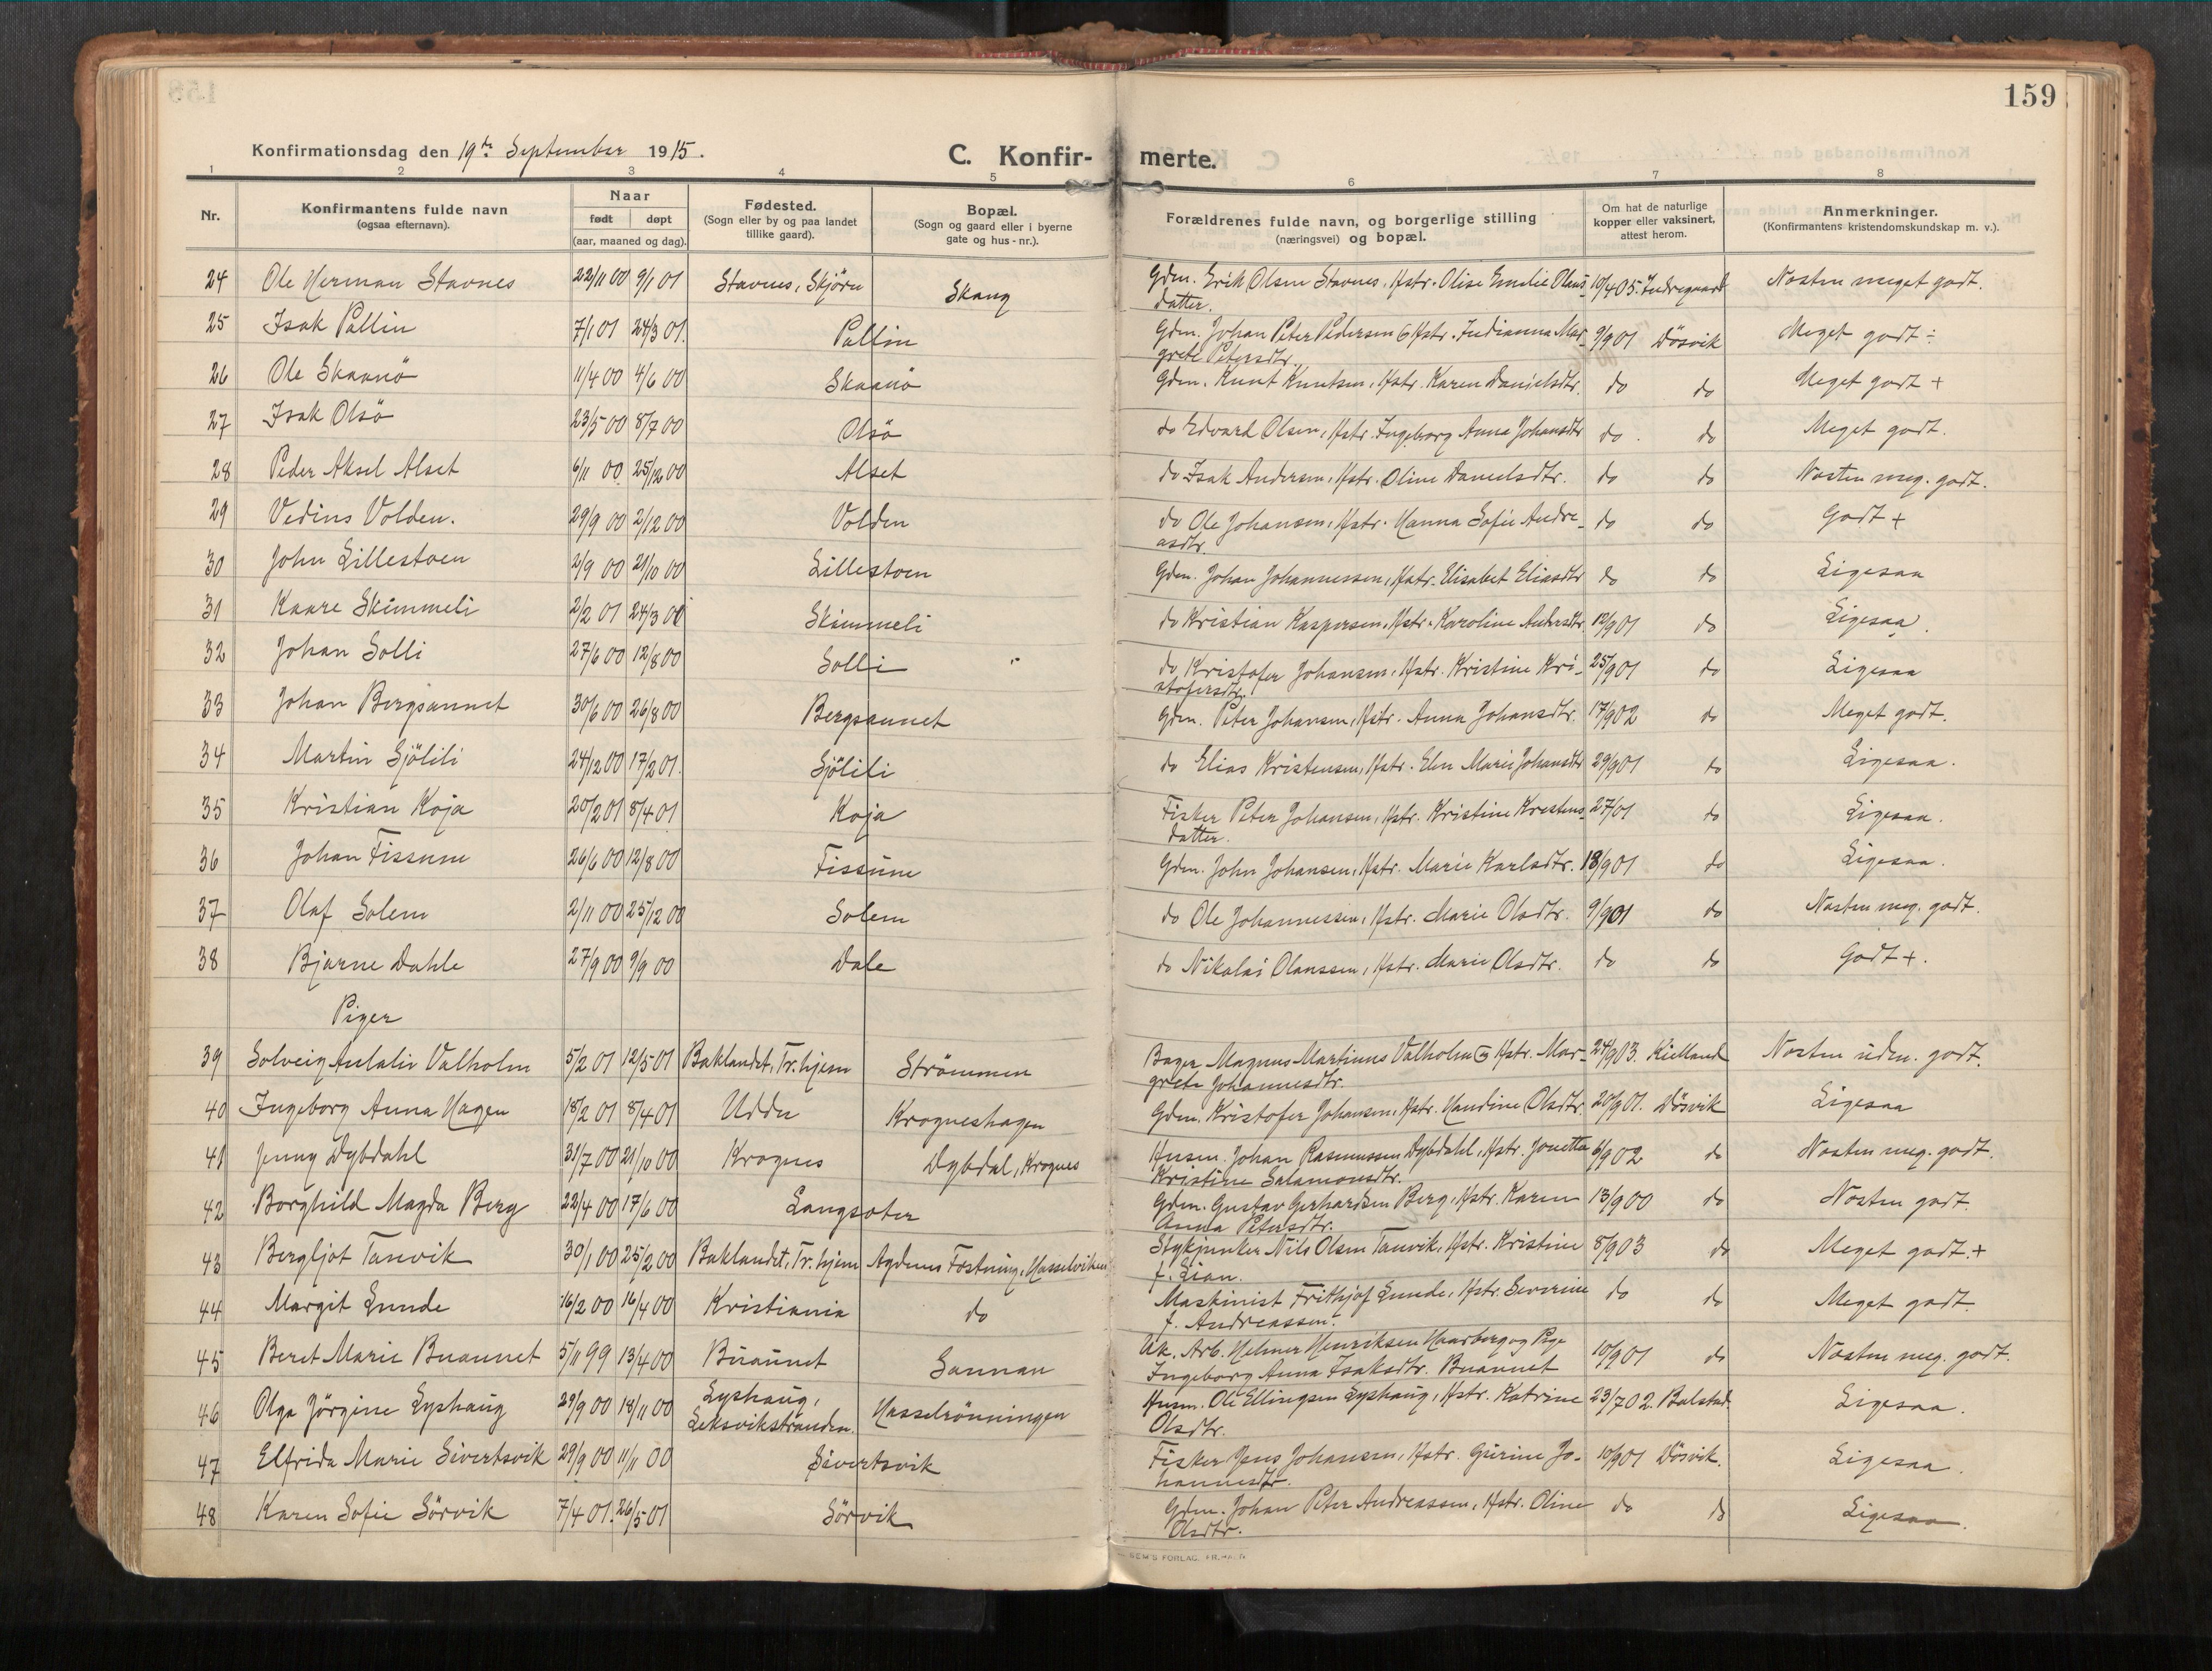 159
Konfirmationsdag den 19de September 1915.
C. Konfir- merte.
1 2 3 4 5 6 7 8
Nr.
Konfirmantens fulde navn
(ogsaa efternavn).
Naar
født døpt
(aar, maaned og dag).
Fødested.
(Sogn eller by og paa landet
tillike gaard).
Bopæl.
(Sogn og gaard eller i byerne
gate og hus-nr.).
Forældrenes fulde navn, og borgerlige stilling
(næringsvei) og bopæl.
Om hat de naturlige
kopper eller vaksinert,
attest herom.
Anmerkninger.
(Konfirmantens kristendomskundskap m. v.).
24 Ole Herman Stavnes 22/11 00 9/1 01 Stavnes, Skjörn Skang Gdm. Erik Olsen Stavnes, Hstr. Olise Emelie Olaus- 10/4 05. Indregaard Næsten meget godt.
datter.
25 Isak Pallin 7/1 01 24/3 01. Pallin Gdm. Johan Peter Pedersen Hstr. Indianna Mar- 9/9 01 Dösvik Meget godt ÷
grete Petersdtr.
26 Ole Skaanö 11/4 00 4/6 00 Skaanö Gdm. Knut Knutsen, Hstr. Karen Danielsdtr. do do Meget godt +
27 Isak Olsö 23/5 00 8/7 00 Olsö do Edvard Olsen, Hstr. Ingeborg Anna Johansdtr do. do Meget godt.
28 Peder Aksel Alset 6/11 00 25/12 00 Alset do Isak Andersen, Hstr. Oline Danielsdtr. do do Næsten meg. godt.
29 Vedius Volden. 29/9 00 2/12 00 Volden do Ole Johansen, Hstr. Hanna Sofie Andre- do do Godt +
asdtr.
30 John Lillestøen 2/9 00 21/10 00 Lillestoen Gdm. Johan Johannessen, Hstr. Elisabet Eliasdtr do do Ligesaa
31 Kaare Skimmeli 2/2 01 24/3 00 Skimmeli do Kristian Kaspersen, Hstr. Karoline Andersdtr. 12/9 01 do Ligesaa.
32 Johan Solli 27/6 00 12/8 00 Solli do Kristofer Johansen, Hstr. Kristine Kri- 25/9 01 do Ligesaa
stofersdtr.
33 Johan Bergsaunet 30/6 00 26/8 00 Bergsaunet Gdm. Peter Johansen, Hstr. Anna Johansdtr. 17/9 02 do Meget godt.
34 Martin Sjölili 24/12 00 17/2 01. Sjölili do Elias Kristensen, Hstr. Elen Marie Johansdtr 29/9 01 do Ligesaa.
35 Kristian Koja 20/2 01 8/4 01 Koja Fisker Peter Johansen, Hstr. Kristine Krestens- 27/01 do Ligesaa.
datter.
36 Johan Fissum 26/6 00 12/8 00 Fissum Gdm. John Johansen, Hstr. Marie Karlsdtr. 18/9 01 do Ligesaa.
37 Olaf Solem 2/11 00 25/12 00 Solem do Ole Johannessen, Hstr. Marie Olsdtr. 9/9 01 do Næsten meg. godt.
38 Bjarne Dahle 27/9 00 9/9 00 Dale do Nikolai Olaussen, Hstr. Marie Olsdtr. do do Godt +.
Piger
39 Solveig Aulalie Valholm 5/2 01 12/5 01 Baklandet, Tr.hjem Strömmen Bager Magnus Martinus Valholm og Hstr. Mar- 24/9 03. Kielland Næsten udm. godt.
grete Johannesdtr.
40 Ingeborg Anna Hagen 18/2 01 8/4 01 Uddu Krogneshagen Gdm. Kristofer Johansen, Hstr. Haudine Olsdtr. 20/9 01. Dösvik Ligesaa
41 Jenny Dybdahl 31/7 00 21/10 00 Krognes Dybdal, Krognes Husm. Johan Rasmussen Dybdahl, Hstr. Jonetta 6/9 02 do Næsten meg. godt.
Kristine Salamonsdtr.
42 Borghild Magda Berg 22/4 00 17/6 00 Langsæter Gdm. Gustav Gerhardsen Berg, Hstr. Karen 13/9 00 do Næsten godt.
Anna Petersdtr.
43 Bergljot Tanvik 30/1 00 25/2 00 Baklandet, Tr.hjem Agdenes Fæstning, Hasselviken Stykjunker Nils Olsen Tanvik, Hstr. Kristine 8/9 03 do Meget godt +
f. Lian.
44 Margit Lunde 16/2 00 16/4 00 Kristiania do Maskinist Frithjof Lunde, Hstr. Severine do do Meget godt.
f. Andreassen.
45 Beret Marie Buaunet 5/11 99 13/4 00 Buaunet Sannan Uk. Arb. Helmer Henriksen Haarberg og Pige 10/9 01 do Næsten meg. godt.
Ingeborg Anna Isaksdtr. Buaunet
46 Olga Jörgine Lyshaug 29/9 00 18/11 00 Lyshaug, Hasselrönningen Husm. Ole Ellingsen Lyshaug, Hstr. Katrine 23/7 02. Balstad. Ligesaa.
Leksvikstranden. Olsdtr.
47 Elfrida Marie Sivertsvik 29/9 00 11/11 00 Sivertsvik Fisker Jens Johansen, Hstr. Gurine Jo- 10/9 01 Dösvik. Ligesaa.
hannesdtr.
48 Karen Sofie Sörvik 7/4 01. 26/5 01 Sörvik Gdm. Johan Peter Andreassen, Hstr. Oline do do Ligesaa.
Olsdtr.